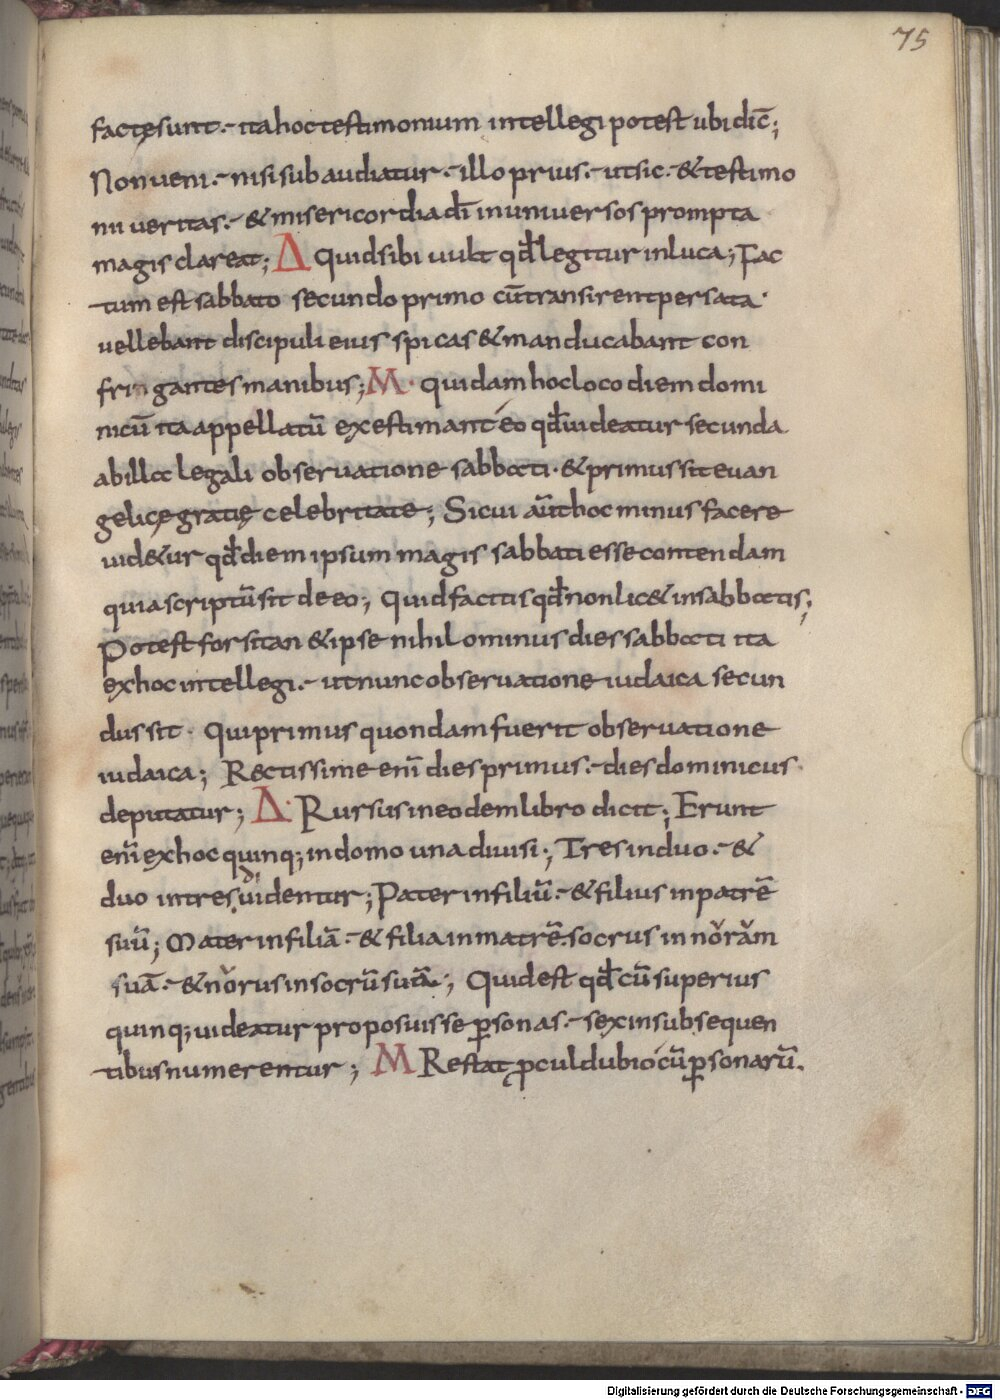 75
factęsunt·- ita hoc testimonium intellegi potest ubi dic̄;
Non ueni·- nisi sub audiatur·- illo prius·- ut sic·- & testimo
nii ueritas·- & misericordia dī in uniuersos prompta
magis clareat; Δ Quid sibi uult qđ legitur in luca; Fac
tum est sabbato secundo primo cū transirent per sata·
uellebant discipuli eius spicas & manducabant con
fringantes manibus; M· Quidam hoc loco diem domi
nicū ita appellatū existimant eo qđ uideatur secunda
ab illa legali obseruatione sabbati· & primus sit euan
gelicę gratię celebritate; Sicui aūt hoc minus facere
uid&ur qđ diem ipsum magis sabbati esse contendam
quia scriptū sit de eo; Quid facitis qđ non lic& in sabbatis;
Potest forsitan & ipse nihilominus dies sabbati ita
ex hoc intellegi·- ut nunc obseruatione iudaica secun
dus sit· Qui primus quondam fuerit obseruatione
iudaica; Rectissime enī dies primus·- dies dominicus·
deputatur; Δ· Rursus in eodem libro dicit; Erunt
enī ex hoc quinq; in domo una diuisi; Tres in duo·- &
duo in tres diuidentur; Pater in filiū·- & filius in patrē
suū; Mater in filiā·- & filia in matrē· socrus in norām
suā·- & norus in socrū suā; Quid est qđ cū superius
quinq; uideatur proposuisse ꝑsonas·- sex in subsequen
tibus numerentur; M Restat ꝓcul dubio cū ꝑsonarū·
Digitalisierung gefördert durch die Deutsche Forschungsgemeinschaft - DFG